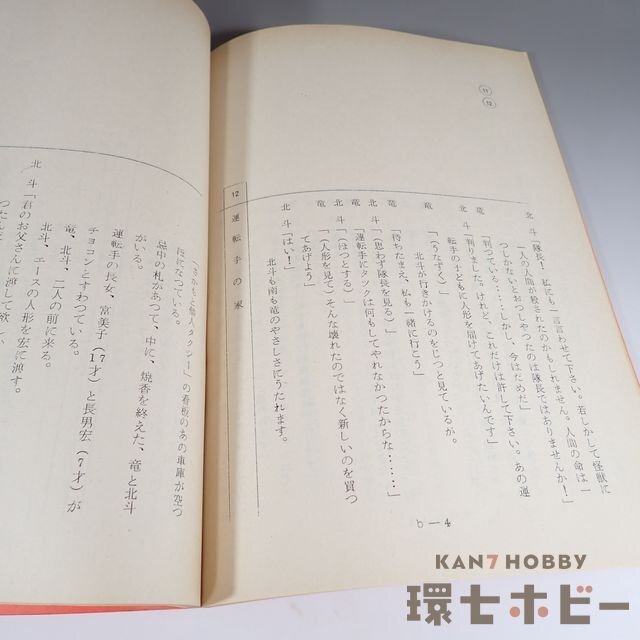 11
12
北 斗「隊長! 私にも一言言わせて下さい。若しかして怪獣に
一人の人間が殺されたのかもしれません。人間の命は一
つしかないとおつしやつたのは隊長ではありませんか!」
竜 「判つている……しかし、今はだめだ」
北 斗「判りました。けれど、これだけは許して下さい。あの運
転手の土どもに人形を届けてあげたいんです」
竜 (うなずく)
北斗が行きかけるのをじつと見ているが。
竜 「待ちたまえ、私も一緒に行こう」
北 斗(思わず隊長を見る)
竜 「運転手にタックは何もしてやれなかつたからな……」
北 斗(ほつとする)
竜 (人形を見て)そんな壊れたのではなく新しいのを買つ
てあげよう」
北 斗「はい!」
北斗も南も竜のやさしさにうたれます。
12 運転手の家
「さかもと個人タクシー」の看板のあの車庫が空つ
ぽになつている。
忌中の札があつて、中に、焼香を終えた、竜と北斗
がいる。
運転手の長女、富美子(17才)と長男宏(7才)が
チョコンとすわつている。
竜、北斗、二人の前に来る。
北斗、エースの人形を宏に渡す。
北 斗「君のお父さんに渡して欲し
b—4
KAN7 HOBBY
環七ホビー